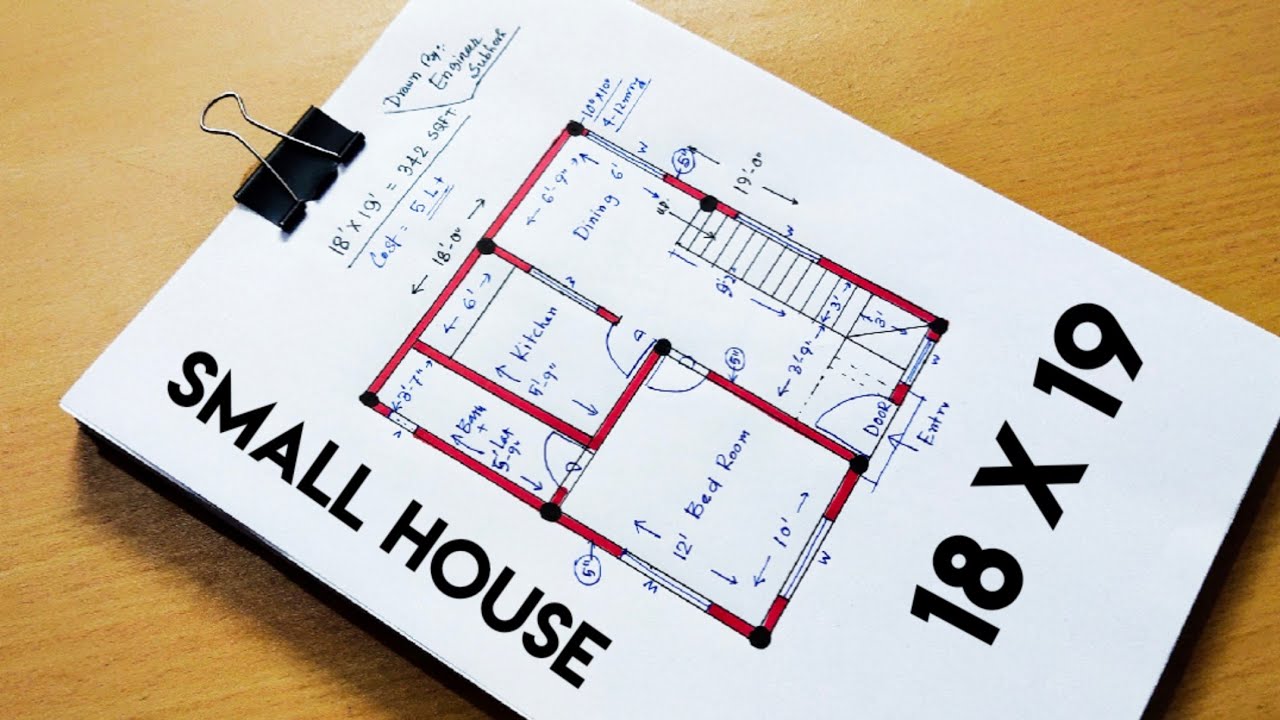 Drawn By:-
Engineer
Subhark
18' X 19' = 342 SQFT
Cost = 5 Lt
18'-0"
10"X10"
4-12mmφ
W
5"
19'-0"
6'-9"
6'
Dining
up
W
9'2"
3'
3'
3'-9"
W
6'
W
Kitchen
5'-9"
D
D
5"
DOOR
Entry
3'-7"
Bath
+
Lat
5'-9"
D
Bed Room
12'
10'
W
W
5"
SMALL HOUSE
18 X 19